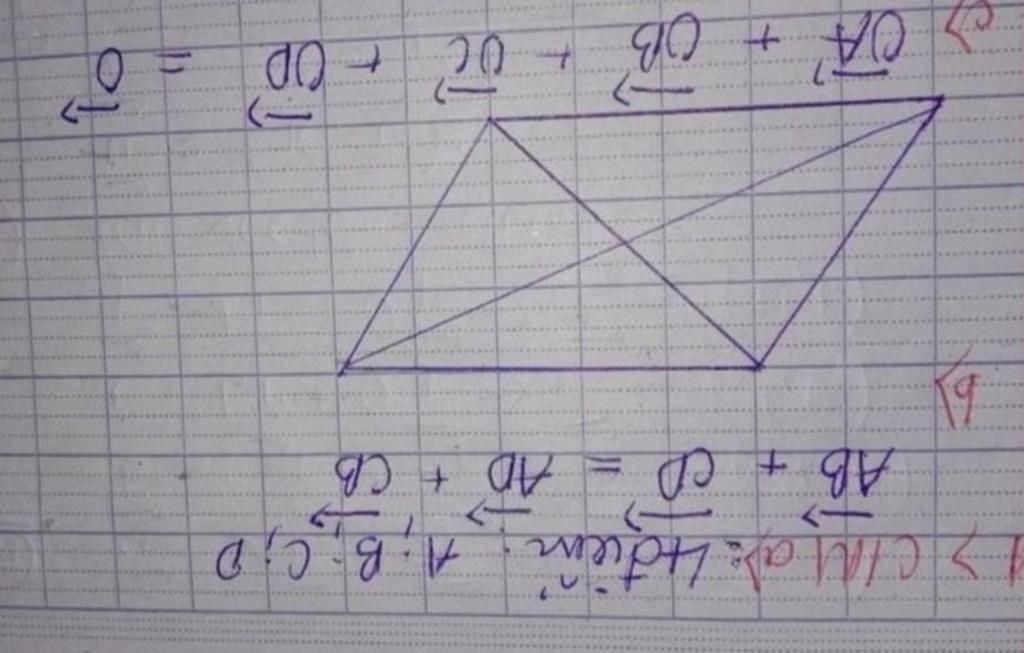 1> CM a) 4 điểm: A; B; C; D
AB + CD = AD + CB
b)
c) OA + OB + OC + OD = O